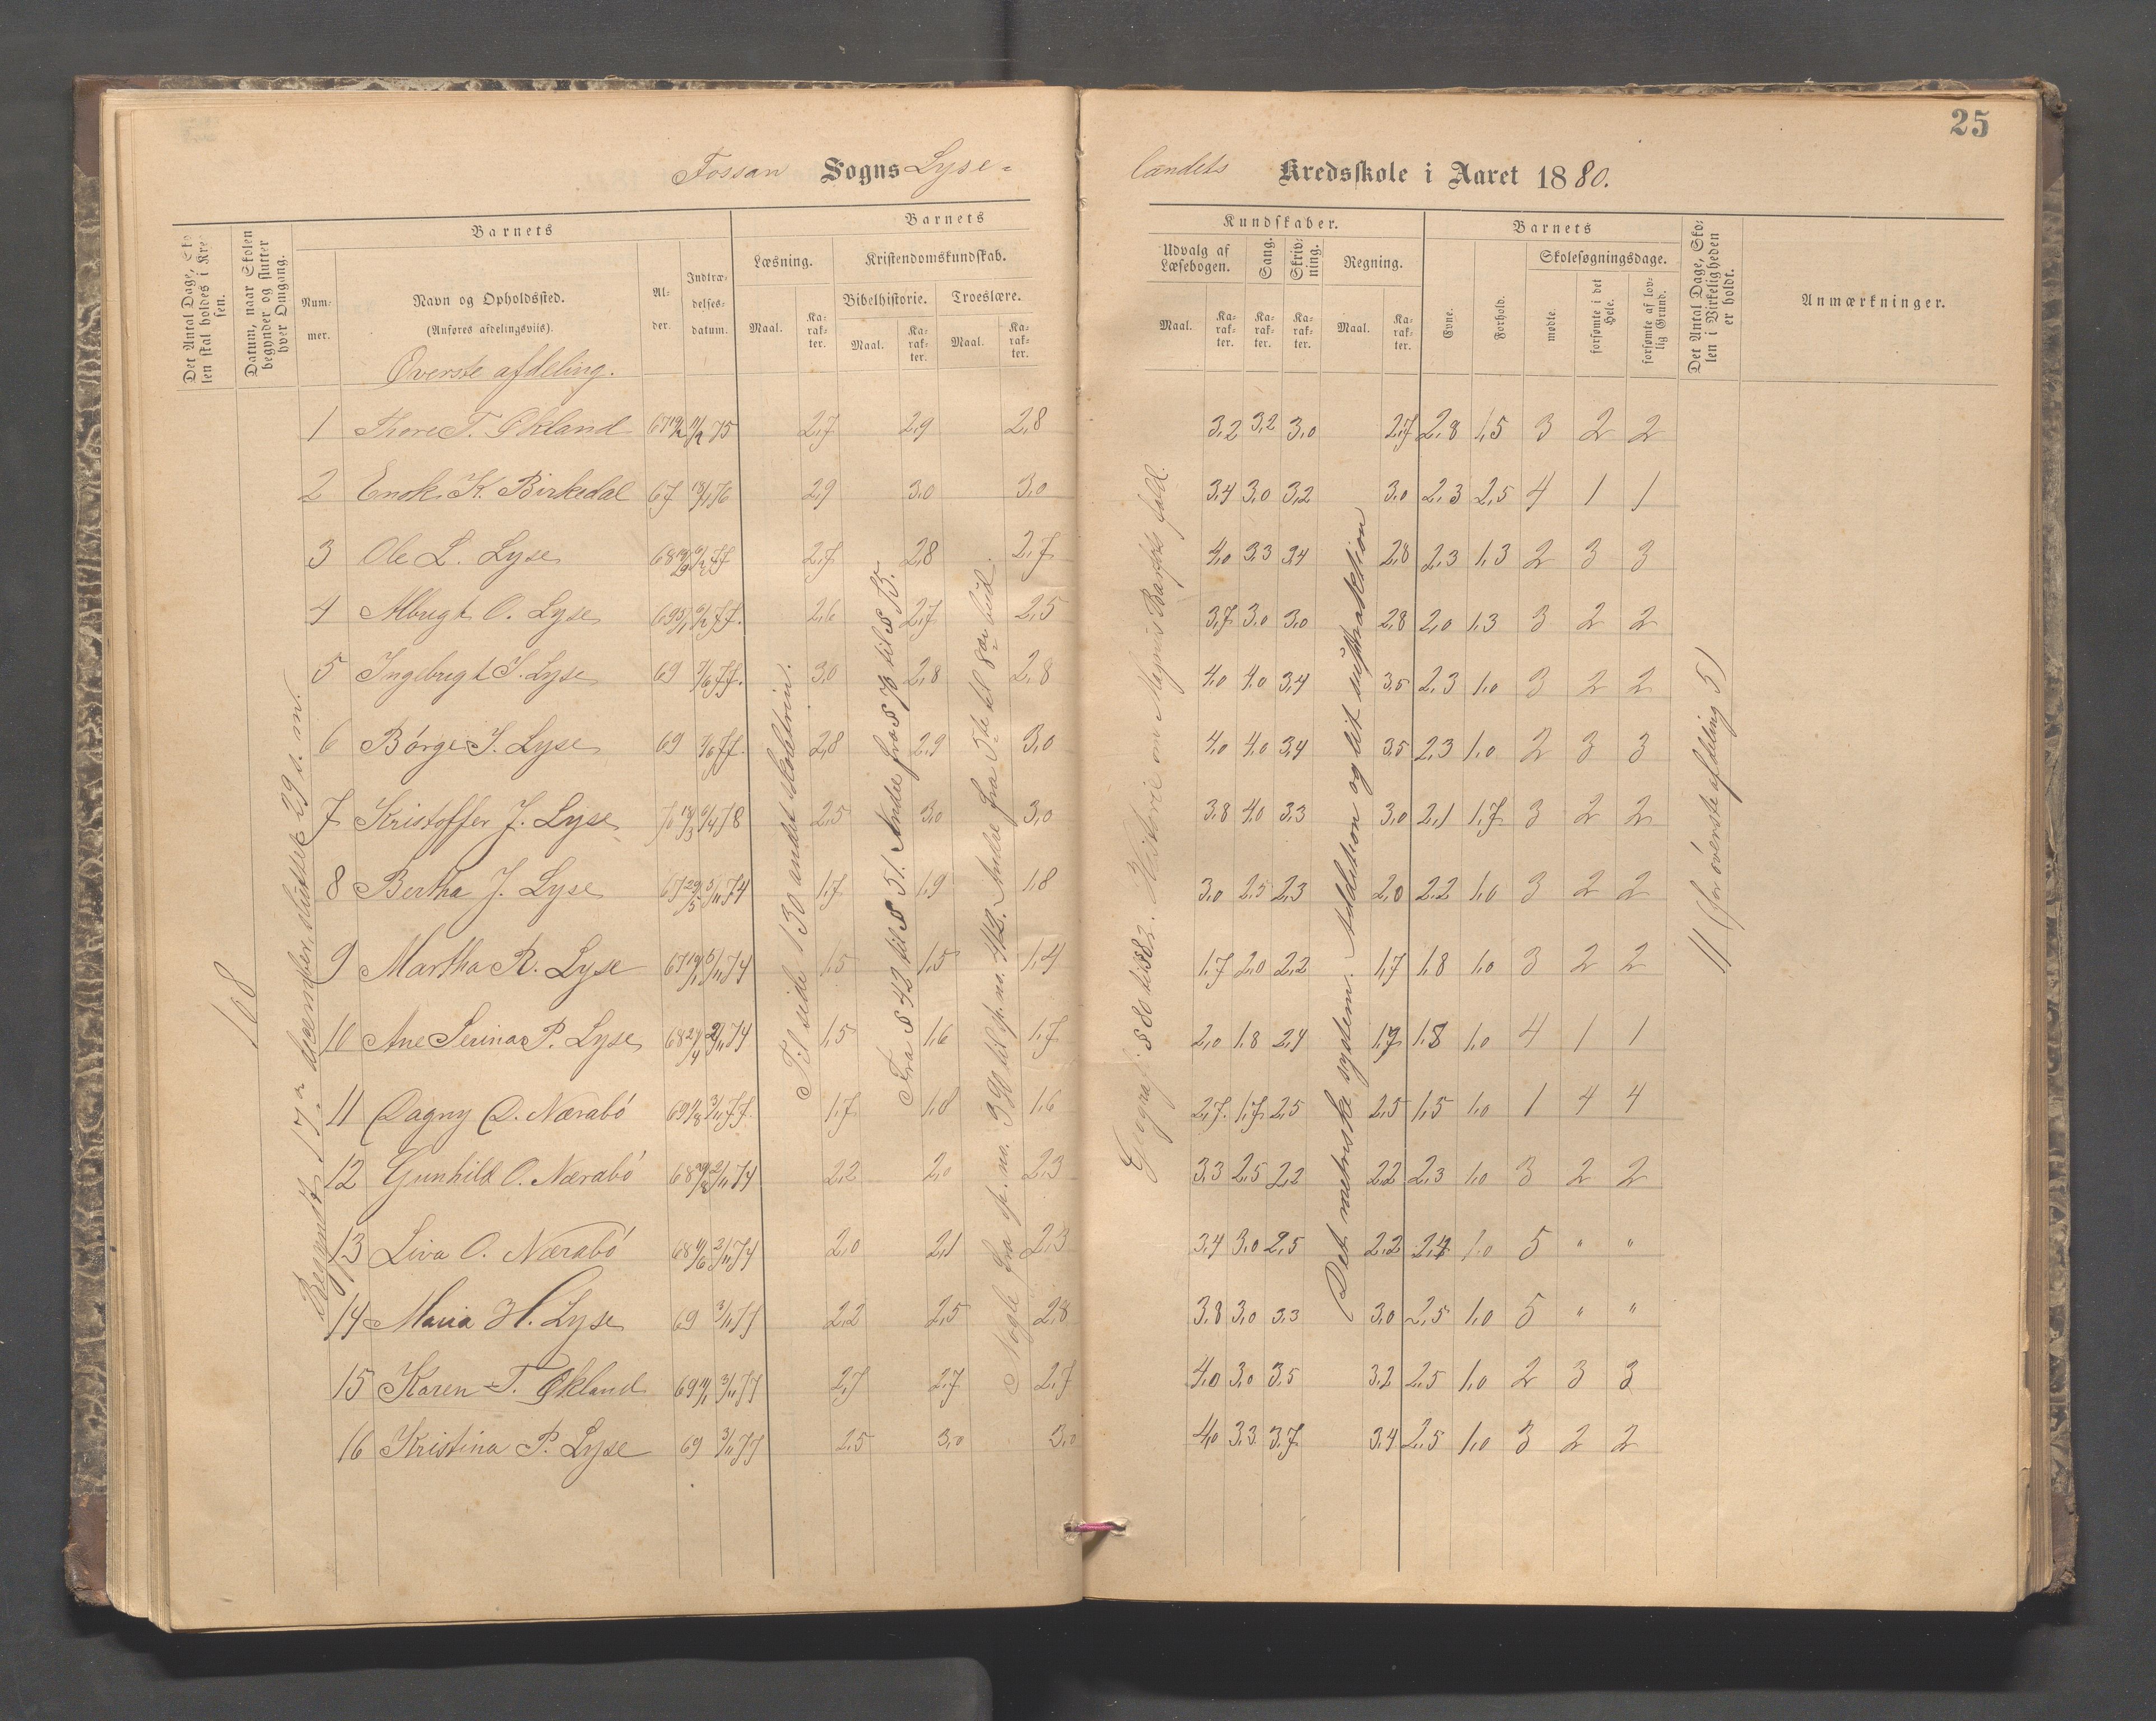 25
Fossan Sogns Lyse- landets Kredsskole i Aaret 1880.
Det Antal Dage, Skolen skal holdes i Kredsen.
Datum, naar Skolen begynder og slutter hver Omgang.
Barnets
Nummer.
Navn og Opholdssted.
(Anføres afdelingsviis).
Alder.
Indtrædelses-datum.
Barnets
Læsning.
Maal.
Karakter.
Kristendomskundskab.
Bibelhistorie.
Maal.
Karakter.
Troeslære.
Maal.
Karakter.
Kundskaber.
Udvalg af Læsebogen.
Maal.
Karakter.
Sang.
Karakter.
Skrivning.
Karakter.
Regning.
Maal.
Karakter.
Barnets
Evne.
Forhold.
Skolesøgningsdage.
mødte.
forsømte i det Hele.
forsømte af lovlig Grund.
Det Antal Dage, Skolen i Virkeligheden er holdt.
Anmærkninger.
Överste afdeling.
168
Begyndt 17de december, sluttet 29 s. m.
Til side 130 andet skoletrin.
Fra § 43 til § 51. Andre fra § 76 til § 85.
Nogle fra sp. no. 390 til sp. no. 412. Andre fra 5te til 8de bud.
Geografi § 80 til 82. Historie om Magnus Barfots fald.
Det metriske system. Addition og lit subtraktion
11 (for överste afdeling 5)
1 Thore T. Økland 75 2,7 2,9 2,8 3,2 3,2 3,0 2,7 2,8 1,5 3 2 2
2 Enok K. Birkedal 67 18/1 76 2,9 3,0 3,0 3,4 3,0 3,2 3,0 2,3 2,5 4 1 1
3 Ole L. Lyse 77 2,7 2,8 2,7 4,0 3,3 3,4 2,8 2,3 1,3 2 3 3
4 Albregt O. Lyse 77. 2,6 2,7 2,5 3,7 3,0 3,0 2,8 2,0 1,3 3 2 2
5 Ingebregt S. Lyse 69 77. 3,0 2,8 2,8 4,0 4,0 3,4 3,5 2,3 1,0 3 2 2
6 Børge S. Lyse 69 77. 2,8 2,9 3,0 4,0 4,0 3,4 3,5 2,3 1,0 2 3 3
7 Kristoffer J. Lyse 78 2,5 3,0 3,0 3,8 4,0 3,3 3,0 2,1 1,7 3 2 2
8 Bertha J. Lyse 67 29/5 5/11 74 1,7 1,9 1,8 3,0 2,5 2,3 2,0 2,2 1,0 3 2 2
9 Martha R. Lyse 67 5/11 74 1,5 1,5 1,4 1,7 2,0 2,2 1,7 1,8 1,0 3 2 2
10 Ane Serina P. Lyse 68 2/11 74 1,5 1,6 1,7 2,0 1,8 2,4 1,7 1,8 1,0 4 1 1
11 Dagny D. Nærabø 69 3/11 77. 1,7 1,8 1,6 2,7 1,7 2,5 2,5 1,5 1,0 1 4 4
12 Gunhild O. Nærabø 68 2/11 74 2,2 2,0 2,3 3,3 2,5 2,2 2,2 2,3 1,0 3 2 2
13 Liva O. Nærabø 68 2/11 74 2,0 2,1 2,3 3,4 3,0 2,5 2,2 2,4 1,0 5 " "
14 Maria H. Lyse 69 3/11 77 2,2 2,5 2,8 3,8 3,0 3,3 3,0 2,5 1,0 5 " "
15 Karen T. Økland 69 3/11 77 2,7 2,7 2,7 4,0 3,0 3,5 3,2 2,5 1,0 2 3 3
16 Kristina P. Lyse 69 3/11 77 2,5 3,0 3,0 4,0 3,3 3,7 3,4 2,5 1,0 3 2 2